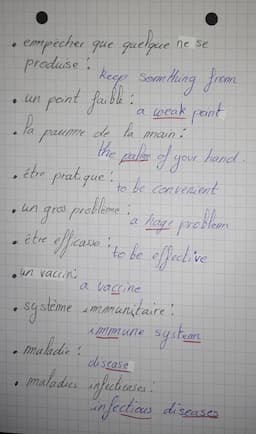 • empêcher que quelque ne se
produise :
keep something from
• un point faible :
a weak point
• la paume de la main :
the palm of your hand.
• être pratique :
to be convenient
• un gros problème :
a huge problem
• être efficace :
to be effective
• un vaccin :
a vaccine
• système immunitaire :
immune system
• maladie :
disease
• maladies infectieuses :
infectious diseases